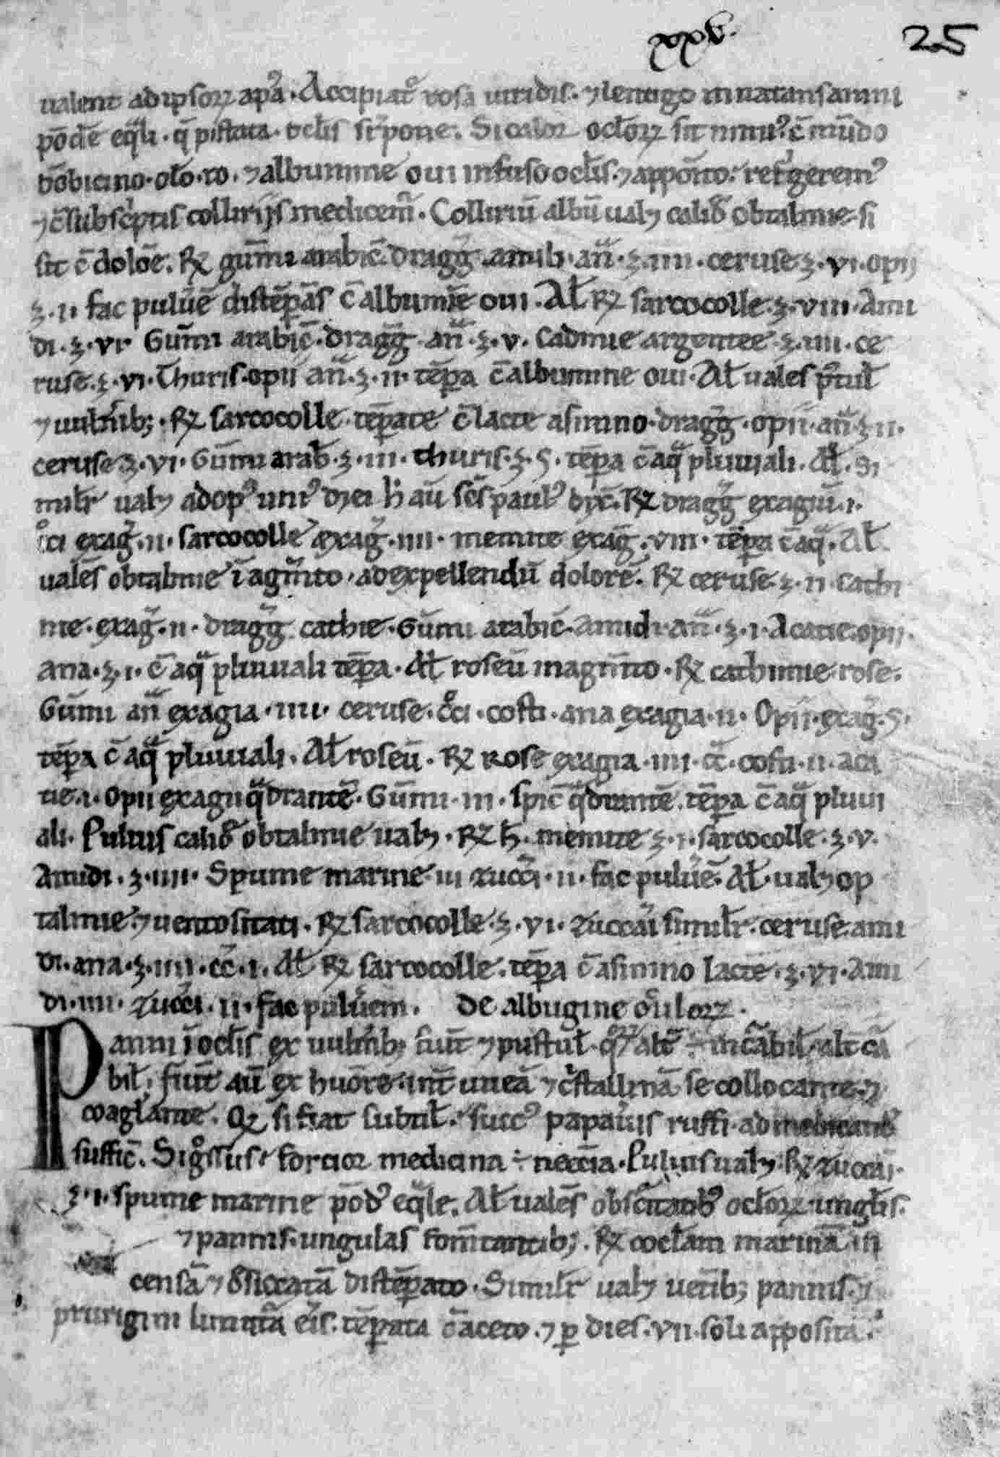 xxv. 25
ualent ad ipsoꝝ apa᷒. Accipiat᷑ rosa uiridis. ⁊ lentigo innatans amni
põde eq̃li. q̃ pistata. oclis sr̃pone. Si calor ocloꝝ sit nimi᷒. c̃ mũdo
bõbicino. oleo. ro. ⁊ albumine oui infuso oclis. ⁊ apposito. ref᷑gerem᷒
⁊ c̃ subsc̃ptis collirijs medicem᷒. Colliriũ albũ ualꝫ calid̃ obtalmie. si
sit c̃ dolõe. ℞ gũmi arabic̃. dragg̃. amili. añ. ʒ. iiii. ceruse ʒ. vi. opii
ʒ. ii. fac puluẽ distẽpãs c̃ albumĩe oui. Al̃ ℞ sarcocolle. ʒ. viii. Ami
di. ʒ. vi. Gũmi arabic̃. dragg̃. añ. ʒ. v. Cadmie argentee. ʒ. iiii. ce
ruse. ʒ. vi. Thuris. opii añ. ʒ. ii. tẽpa c̃ albumine oui. Al̃ uales p᷑tul̃
⁊ uuln̄ibꝫ. ℞ sarcocolle. tẽpate c̃ lacte asinino. dragg̃. opii. añ. ʒ. ii.
ceruse ʒ. vi. Gũmi arab̃. ʒ. iii. thuris. ʒ. s. tẽpa c̃ aq̃ pluuiali. Al̃. Si
mil̃r ualꝫ ad op᷒ uni᷒ diei h̃ aũ sc̃s paul᷒ dix̃. ℞ dragg̃ exagiũ. i.
c᷑ci exag̃. ii. sarcocolle exag̃. iiii. memite exag̃. viii. tẽpa c̃ aq̃. Al̃
uales obtalmie ĩ agm̃to. ad expellendũ dolorẽ. ℞ ceruse. ʒ. ii. cathi
mie. exag̃. ii. dragg̃. cathie. Gũmi arabic̃. amidi. añ. ʒ. i. Acacie. opii.
ana. ʒ. i. c̃ aq̃ pluuiali tẽpa. Al̃ roseũ in agm̃to. ℞ cathimie. rose.
Gũmi añ exagia. iiii. ceruse. c᷑ci. costi. ana exagia. ii. Opii. exag̃. s.
tẽpa c̃ aq̃ pluuiali. Al̃ roseũ. ℞ rose exagia. iiii. costi. ii. aca
tie. i. Opii exagii q̃drantẽ. Gũmi. iii. Spic̃ q̃drantẽ. tẽpa c̃ aq̃ pluui
ali. Puluis calid̃ obtalmie ualꝫ. ℞ h̃. memite ʒ. i. sarcocolle. ʒ. v.
Amidi. ʒ. iiii. Spume marine iii zucc̃i. ii. fac puluẽ. Al̃. ualꝫ op
talmie. ⁊ uentositati. ℞ sarcocolle. ʒ. vi. zuccari simil̃r. ceruse. ami
di. ana. ʒ. iiii. i. Al̃ ℞ sarcocolle. tẽpa c̃ asinino lacte. ʒ. vi. Ami
di. iiii. zucc̃i. ii. fac puluerem. De albugine oculoꝝ.
Panni ĩ oclis ex uuln̄ibꝫ fiũt ⁊ pustul̃.
bil̃. fiũt aũ ex huõre. int̃ uueã ⁊ c᷑stallinã se collocante. ⁊
coagl̃ante. Qꝫ si fiat subtil̃. succ᷒ papaueris ruffi. ad medicand̃
suffic̃. Si grossus. forcior medicina ÷ necc̃ia. Puluis ualꝫ. ℞ zuccari.
ʒ. i. spume marine põd᷒ eq̃le. Al̃ uales obsc᷑itatibꝫ ocloꝝ. ungl̃is.
⁊ pannis. ungulas fom̃tantibꝫ. ℞ coclẽam marinã. in
censã ⁊ desiccatã distẽpato. Simil̃r ualꝫ uet̃ibꝫ pannis. ⁊
prurigini. tẽpata c̃ aceto. ⁊ ꝑ dies. vii. soli apposita.